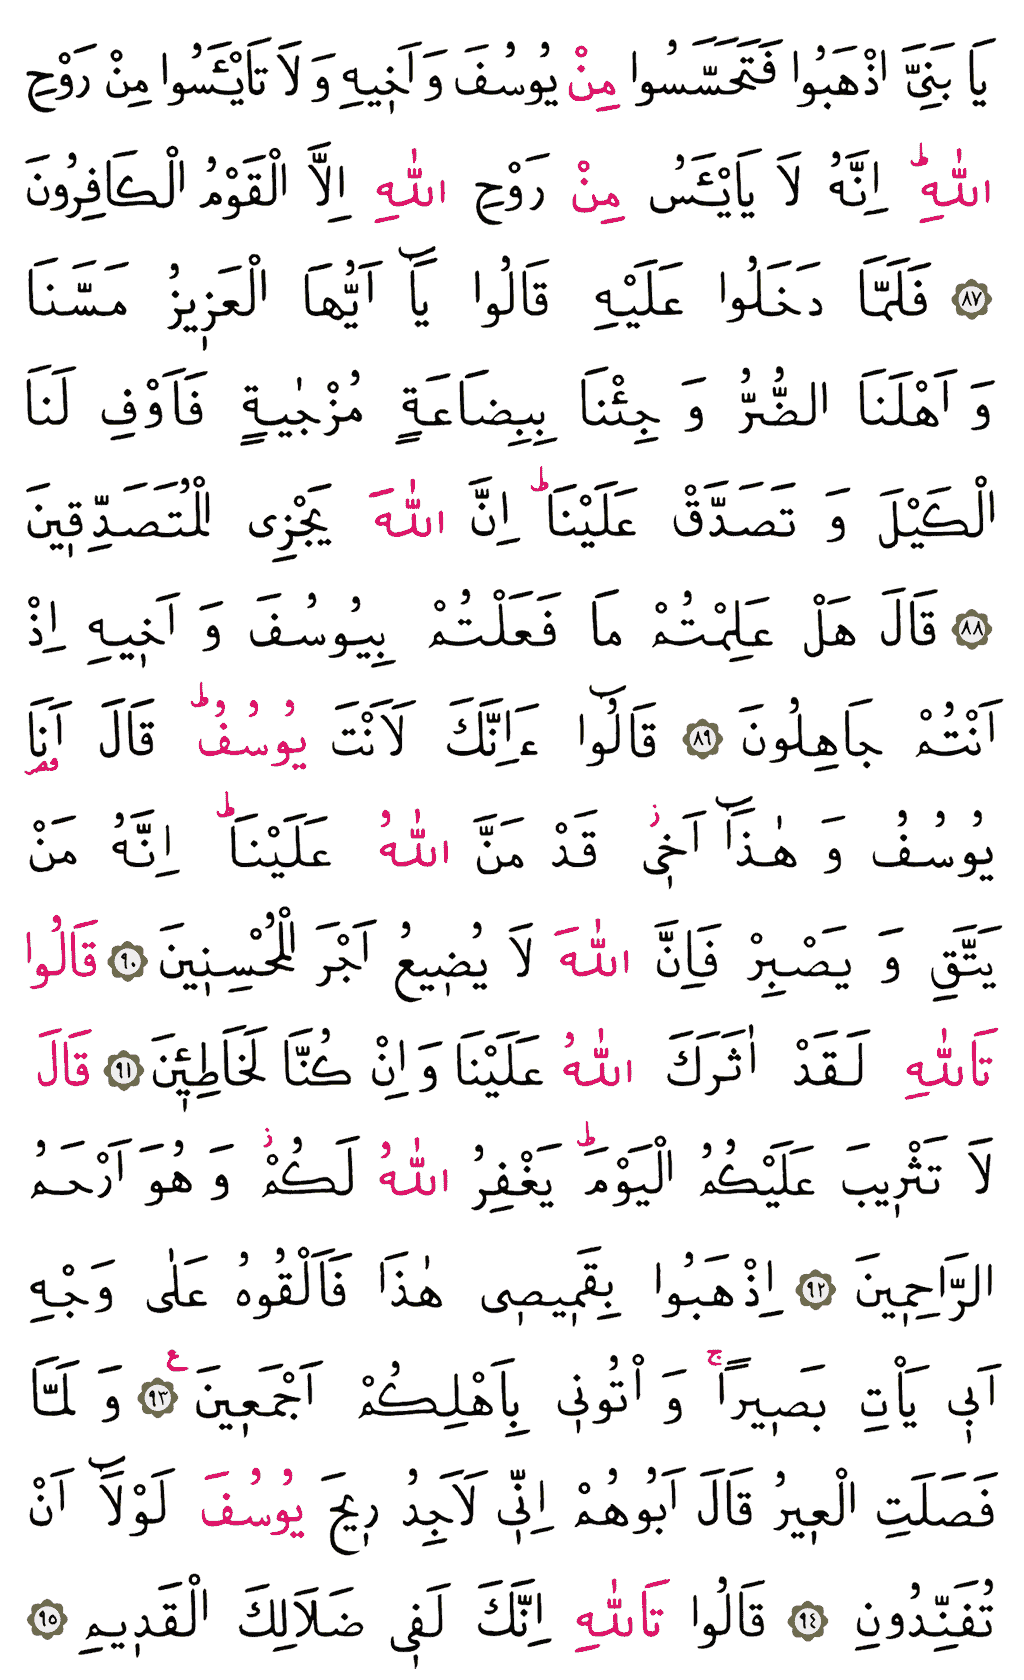 يَا بَنِيَّ اذْهَبُوا فَتَحَسَّسُوا مِنْ يُوسُفَ وَاَخٖيهِ وَلَا تَايْـَٔسُوا مِنْ رَوْحِ
اللّٰهِ ؕ اِنَّهُ لَا يَايْـَٔسُ مِنْ رَوْحِ اللّٰهِ اِلَّا الْقَوْمُ الْكَافِرُونَ
﴿٨٧﴾ فَلَمَّا دَخَلُوا عَلَيْهِ قَالُوا يَٓا اَيُّهَا الْعَزٖيزُ مَسَّنَا
وَ اَهْلَنَا الضُّرُّ وَ جِئْنَا بِبِضَاعَةٍ مُزْجٰيةٍ فَاَوْفِ لَنَا
الْكَيْلَ وَ تَصَدَّقْ عَلَيْنَا ؕ اِنَّ اللّٰهَ يَجْزِى الْمُتَصَدِّقٖينَ
﴿٨٨﴾ قَالَ هَلْ عَلِمْتُمْ مَا فَعَلْتُمْ بِيُوسُفَ وَ اَخٖيهِ اِذْ
اَنْتُمْ جَاهِلُونَ ﴿٨٩﴾ قَالُٓوا ءَاِنَّكَ لَاَنْتَ يُوسُفُ ؕ قَالَ اَنَا قصر
يُوسُفُ وَ هٰذَٓا اَخٖى ز قَدْ مَنَّ اللّٰهُ عَلَيْنَا ؕ اِنَّهُ مَنْ
يَتَّقِ وَ يَصْبِرْ فَاِنَّ اللّٰهَ لَا يُضٖيعُ اَجْرَ الْمُحْسِنٖينَ ﴿٩٠﴾ قَالُوا
تَاللّٰهِ لَقَدْ اٰثَرَكَ اللّٰهُ عَلَيْنَا وَ اِنْ كُنَّا لَخَاطِپٖٔينَ ﴿٩١﴾ قَالَ
لَا تَثْرٖيبَ عَلَيْكُمُ الْيَوْمَ ؕ يَغْفِرُ اللّٰهُ لَكُمْ ز وَ هُوَ اَرْحَمُ
الرَّاحِمٖينَ ﴿٩٢﴾ اِذْهَبُوا بِقَمٖيصٖى هٰذَا فَاَلْقُوهُ عَلٰى وَجْهِ
اَبٖى يَاْتِ بَصٖيراً ۚ وَ اْتُونٖى بِاَهْلِكُمْ اَجْمَعٖينَ ﴿٩٣﴾ ع وَ لَمَّا
فَصَلَتِ الْعٖيرُ قَالَ اَبُوهُمْ اِنّٖى لَاَجِدُ رٖيحَ يُوسُفَ لَوْلَٓا اَنْ
تُفَنِّدُونِ ﴿٩٤﴾ قَالُوا تَاللّٰهِ اِنَّكَ لَفٖى ضَلَالِكَ الْقَدٖيمِ ﴿٩٥﴾